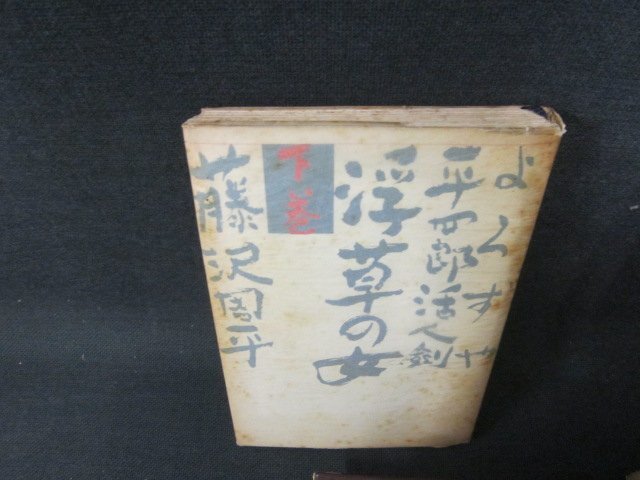 よろずや
平四郎活人剣
浮草の女
下巻
藤沢周平